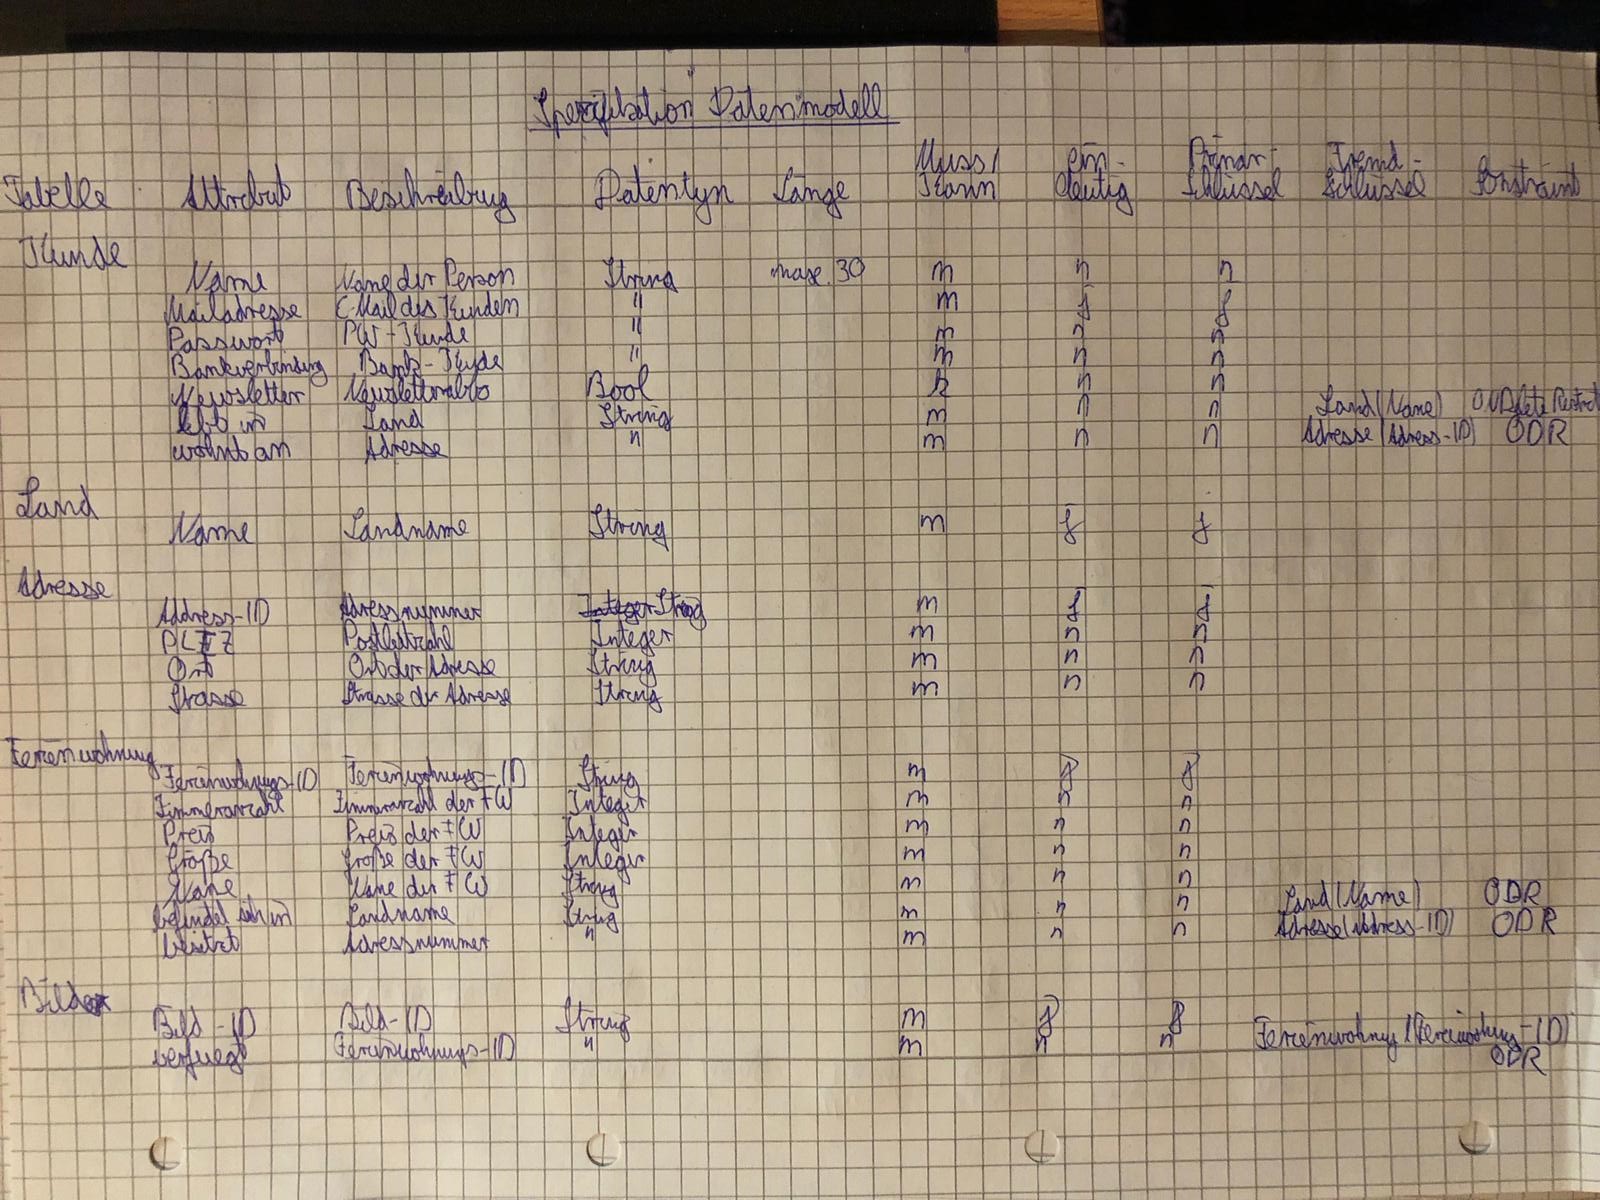 Spezifikation Datenmodell
Tabelle Attribut Beschreibung Datentyp Länge Muss/Kann ein-deutig Primär-schlüssel Fremd-schlüssel Constraint
Kunde
Name Name der Person String max. 30 m n n
Mailadresse E-Mail des Kunden " m j j
Passwort PW-Kunde " m n n
Bankverbindung Bank-Kunde " m n n
Newsletter Newsletterabo Bool k n n
lebt in Land String m n n Land(Name) ON Delete Restrict
wohnt an Adresse " m n n Adresse(Adress-ID) ODR
Land
Name Landname String m j j
Adresse
Address-ID Adressnummer String m j j
PLZ Postleitzahl Integer m n n
Ort Ort der Adresse String m n n
Strasse Strasse der Adresse String m n n
Ferienwohnung
Ferienwohnungs-ID Ferienwohnungs-ID String m j j
Zimmeranzahl Zimmeranzahl der FW Integer m n n
Preis Preis der FW Integer m n n
Größe Größe der FW Integer m n n
Name Name der FW String m n n
befindet sich in Landname String m n n Land(Name) ODR
besitzt Adressnummer " m n n Adresse(Address-ID) ODR
Bild
Bild-ID Bild-ID String m j j
verfuegt Ferienwohnungs-ID " m n n Ferienwohnung(Ferienwohnung-ID)
ODR